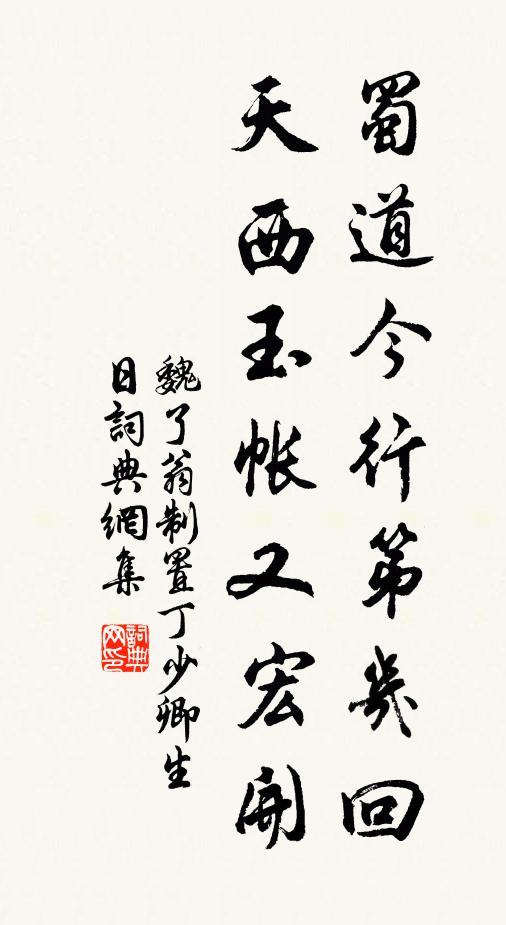 蜀道今行第幾回
天西玉帳又宏開
魏了翁制置丁少卿生
日詞典網集
詞典网印